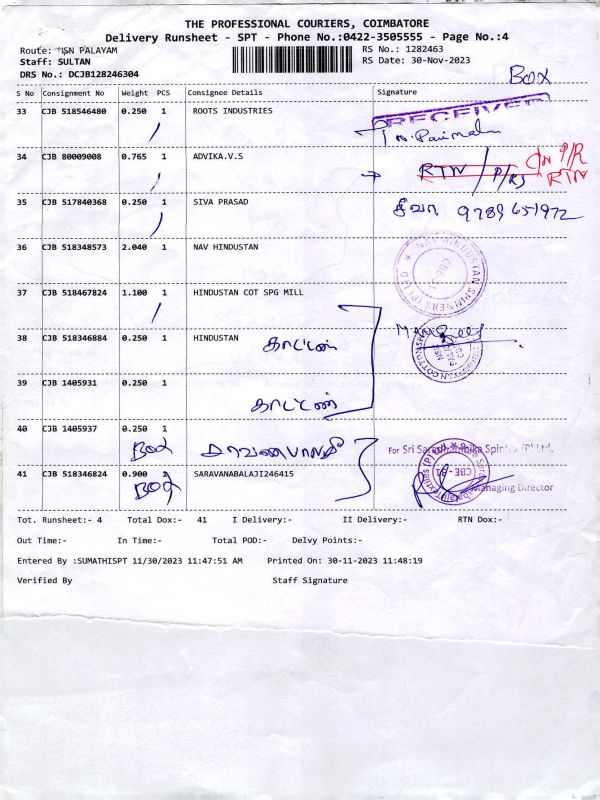 THE PROFESSIONAL COURIERS, COIMBATORE
Delivery Runsheet - SPT - Phone No.:0422-3505555 - Page No.:4
Route: HSN PALAYAM RS No.: 1282463
Staff: SULTAN RS Date: 30-Nov-2023
DRS No.: DCJB128246304
Box
S No Consignment No Weight PCS Consignee Details Signature
33 CJB 518546480 0.250 1 ROOTS INDUSTRIES RECEIVED
34 CJB 80009008 0.765 1 ADVIKA.V.S RTN P/R
RTN
35 CJB 517840368 0.250 1 SIVA PRASAD சிவா 9789651972
36 CJB 518348573 2.040 1 NAV HINDUSTAN
NAV HINDUSTAN SPINNERS (P) LTD CBE-31
37 CJB 518467824 1.100 1 HINDUSTAN COT SPG MILL
38 CJB 518346884 0.250 1 HINDUSTAN காட்டன்
39 CJB 1405931 0.250 1
காட்டன்
40 CJB 1405937 0.250 1
Box For Sri Saradhambika Spintex (P) Ltd.
41 CJB 518346824 0.900 SARAVANABALAJI246415 CBE-31
Box Managing Director
Tot. Runsheet:- 4 Total Dox:- 41 I Delivery:- II Delivery:- RTN Dox:-
Out Time:- In Time:- Total POD:- Delvy Points:-
Entered By :SUMATHISPT 11/30/2023 11:47:51 AM Printed On: 30-11-2023 11:48:19
Verified By Staff Signature